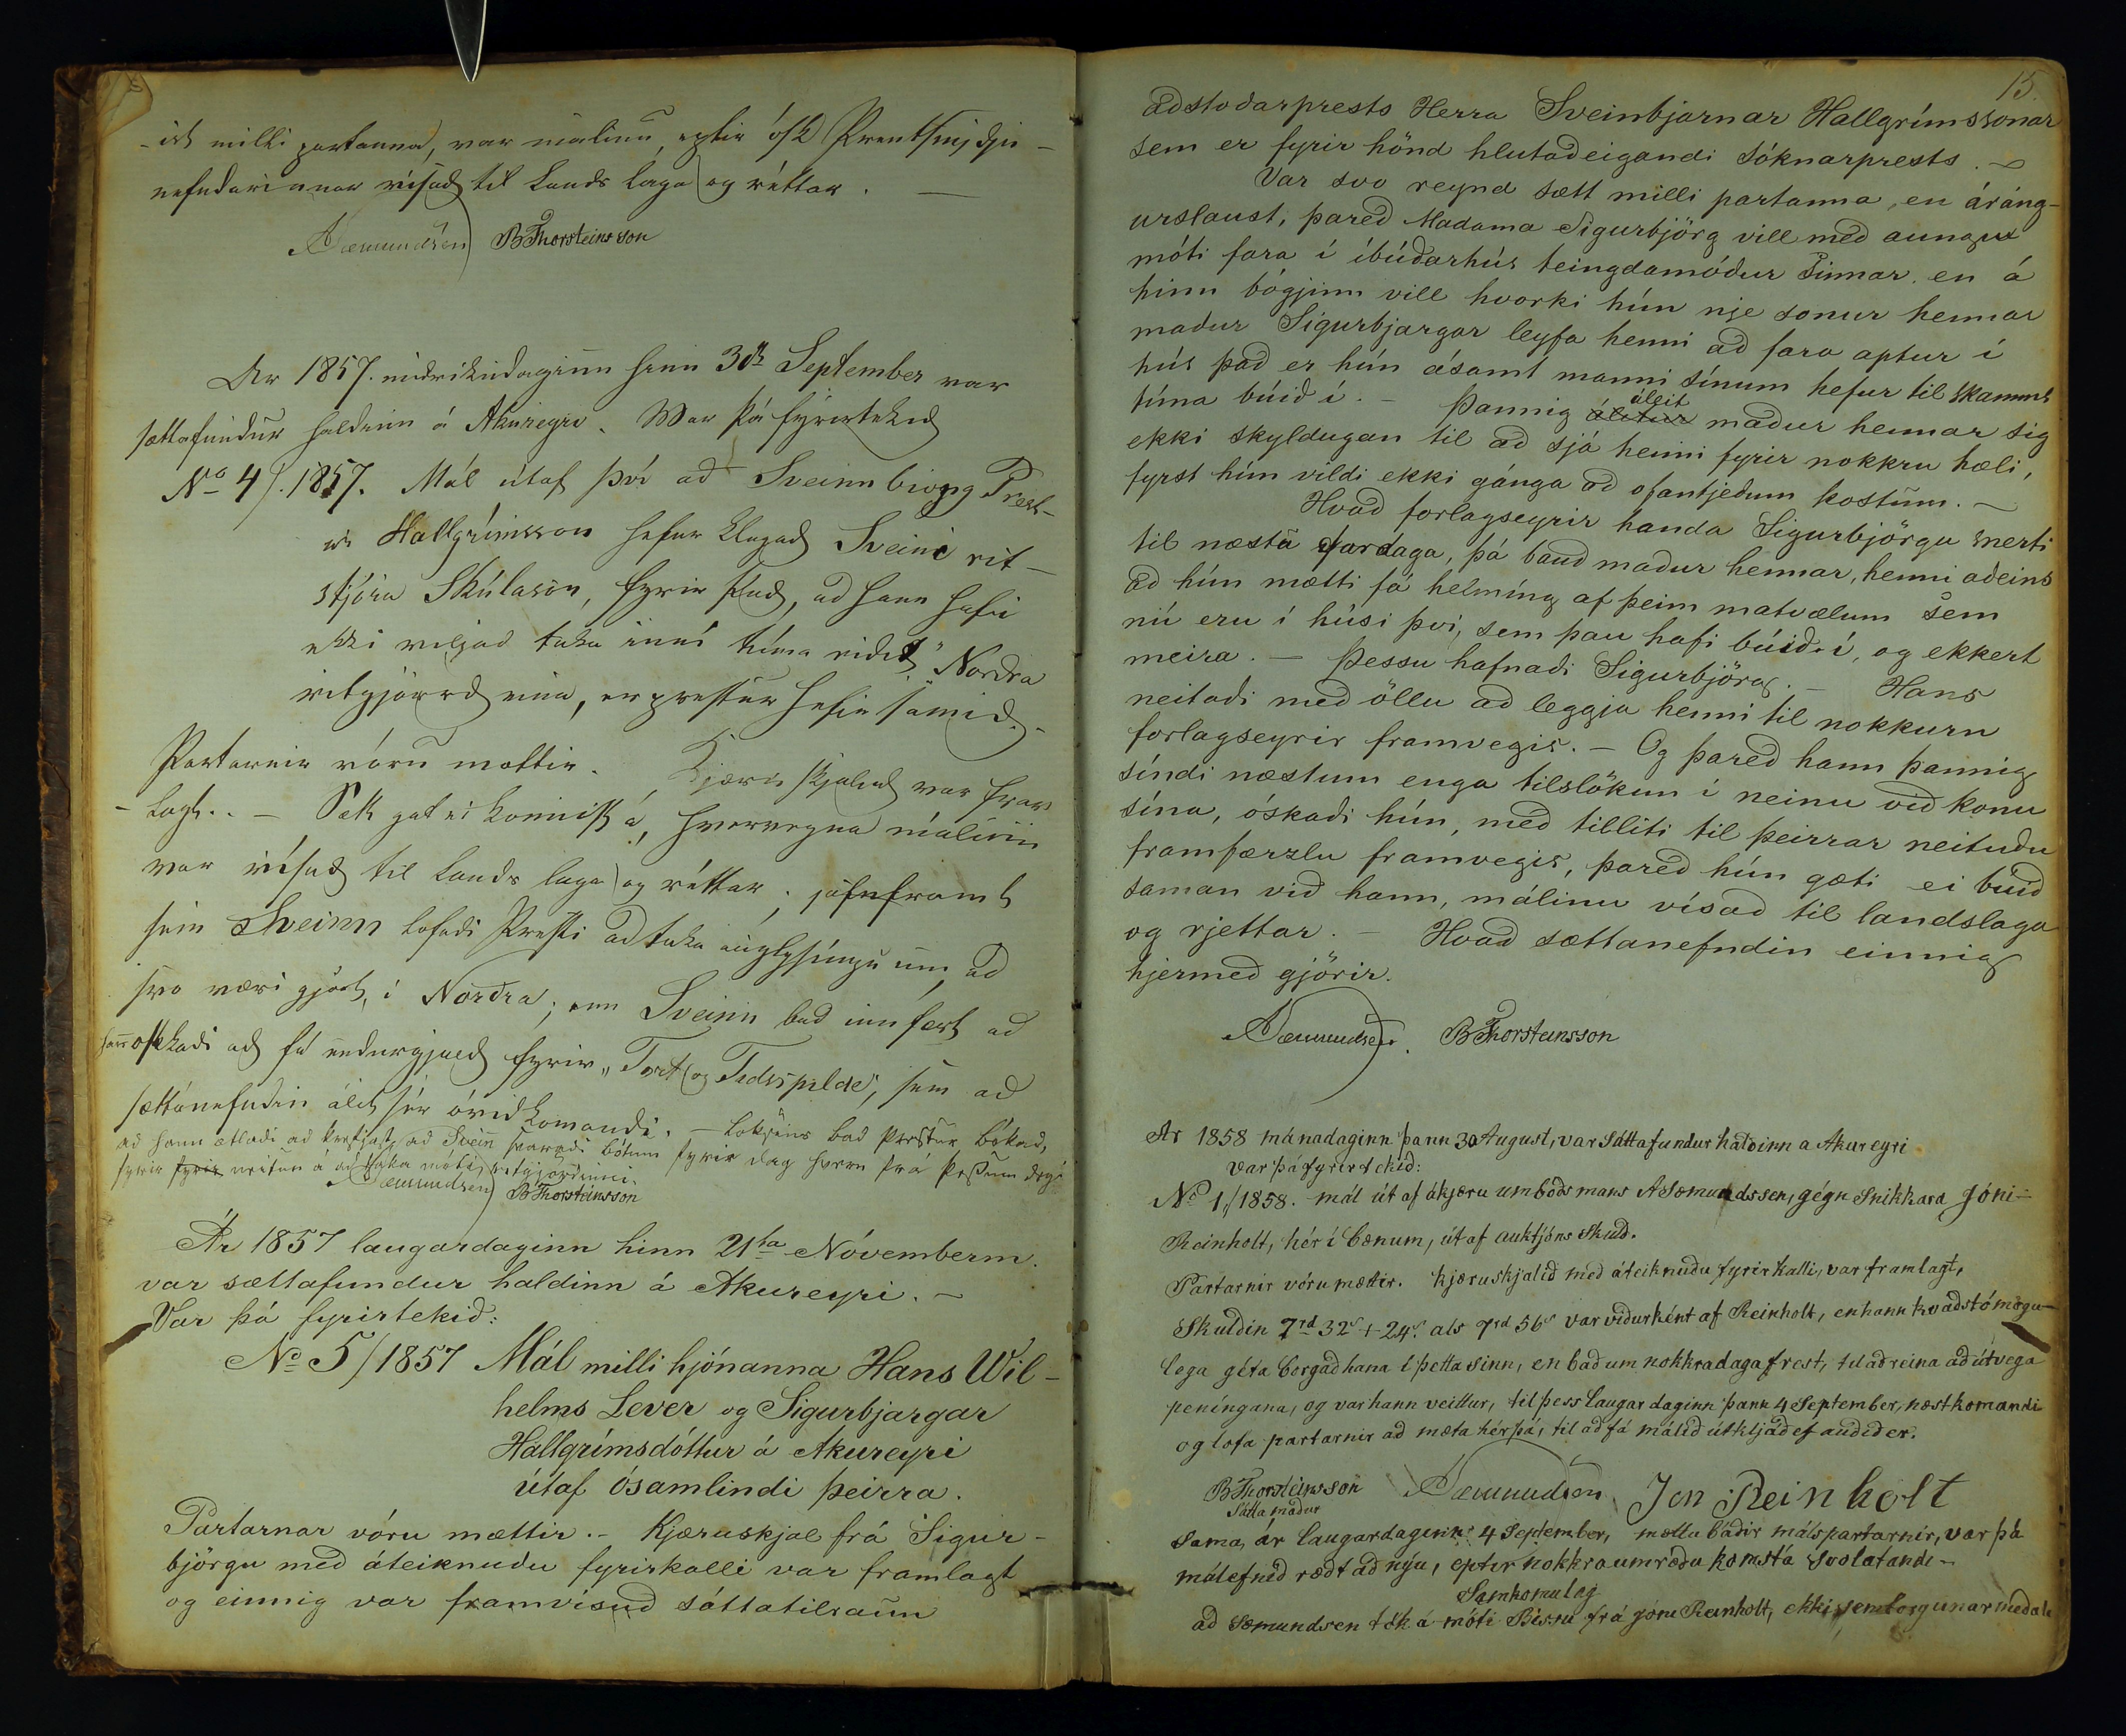 -ist milli partanna, var málinu, eptir ósk Prentsmidju-
nefndarinnar vísad til Lands laga og réttar. —
ASæmundsen BThorsteinsson
Ar 1857. midvikudaginn hinn 30th September var
sættafundur haldinn á Akureyri. War þá fyrirtekid
No 4/. 1857. Mál útaf því ad Sveinnbiörg Prest-
ur Hallgrímsson hefur klagad Sveini rit-
stjóra Skúlason, fyrir það, ad hann hafi
ekki viljad taka inní tímaritid „Nordra
ritgjörd eina, er prestur hefir samid.-
Partarnir vóru mættir. Kjæru skjalid var fram
-lagt. - Sátt gat ei komist á, hvervegna málinu
var vísad til Lands laga og réttar. jafnframt
sem Sveinn lofadi Presti ad taka auglysingu um, ad
svo væri gjört, í Nordra; enn Sveinn bad innfært ad
hann óskadi ad fá endurgjald fyrir „Tort og Tidsspilde", sem ad
sættanefndin áleit sér óvidkomandi. - Loksins bad Prestur bókad,
ad hann ætladi ad krefjast ad Svein svaradi bótum fyrir dag hvern frá þessum degi
fyrir fyrir neitun á ad taka móti ritgjördinni.
ASæmundsen BThorsteinsson
Ár 1857 laugardaginn hinn 21ta Nóvemberm.
var sættafundur haldinn á Akureyri. -
Var þá fyrirtekið:
No 5/1857 Mál milli hjónanna Hans Wil-
helms Lever og Sigurbjargar
Hallgrímsdóttur á Akureyri
útaf ósamlindi þeirra.
Partarnar vóru mættir. - Kjæruskjal frá Sigur-
björgu með áteiknuðu fyrirkalli var framlagt
og einnig var framvísuð sáttatilraun
15.
aðstoðarprests Herra Sveinbjarnar Hallgrímssonar
sem er fyrir hönd hlutaðeigandi sóknarprests. -
Var svo reynd sætt milli partanna, en áráng-
urslaust, þareð Madama Sigurbjörg vill með aungvu
móti fara í íbúðarhús teingdamóður sinnar, en á
hinn bógjinn vill hvorki hún nje sonur hennar
maður Sigurbjargar leyfa henni að fara aptur í
hús það er hún ásamt manni sínum hefur til skamms
tíma búið í. - Þannig álitur áleit maður hennar sig
ekki skyldugan til að sjá henni fyrir nokkru hæli,
fyrst hún vildi ekki gánga að ofantjeðum kostum. -
Hvað forlagseyrir handa Sigurbjörgu snerti
til næstu fardaga, þá bauð maður hennar, henni aðeins
að hún mætti fá helmíng af þeim matvælum sem
nú eru í húsi því, sem þau hafi búið í, og ekkert
meira. - Þessu hafnaði Sigurbjörg. - Hans
neitaði með öllu að leggja henni til nokkurn
forlagseyrir framvegis. - Og þareð hann þannig
síndi næstum enga tilslökun í neinu við konu
sína, óskaði hún, með tilliti til þeirrar neituðu
framfærzlu framvegis, þareð hún gæti ei búið
saman við hann, málinu vísað til landslaga
og rjettar. - Hvað sættanefndin einnig
hjermeð gjörir.
ASæmundsen. BThorsteinsson
Ár 1858 mánadaginn þann 30 August, var Sáttafundur haldinn a Akureyri
Var þá fyrirtekið:
No 1/1858. mál út af ákjæru umboðsmans ASæmundssen, gégn Snikkara Jóni
Reinholt, hér í bænum, út af auktjóns skuld.
Partarnir vóru mættir. kjæruskjalið með áteiknuðu fyrirkalli, var framlagt,
Skuldin 7rd 32s + 24s. als 7rd 56s var viðurként af Reinholt, en hann kvaðst ómögu-
lega géta borgað hana í þetta sinn, en bað um nokkra daga frest, til að reina að útvega
peníngana, og var hann veittur, til þess Laugardaginn þann 4 September, næstkomandi
og lofa partarnir að mæta hér þá, til að fá málið útkljáð ef auðið er.
BThorsteinsson ASæmundsen Jon Reinholt
Sátta maður
Sama ár laugardaginn 4 September, mættu báðir málspartarnir, var þá
málefnið rædt að nýu, eptir nokkra umræðu komst á svolátandi-
Samkomulag
að Sæmundsen tók á móti Bissu frá Jóni Reinholt, ekki sem borgunarmeðali